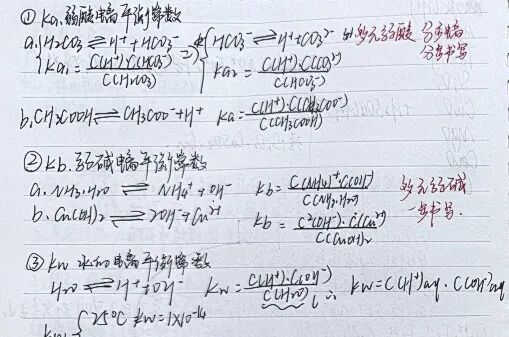 ① Ka. 弱酸电离平衡常数
a. H₂CO₃ ⇌ H⁺ + HCO₃⁻ ⇒ HCO₃⁻ ⇌ H⁺ + CO₃²⁻ 多元弱酸 分步电离
Ka₁ = C(H⁺)·C(HCO₃⁻) / C(H₂CO₃) Ka₂ = C(H⁺)·C(CO₃²⁻) / C(HCO₃⁻) 分步书写
b. CH₃COOH ⇌ CH₃COO⁻ + H⁺ Ka = C(H⁺)·C(CH₃COO⁻) / C(CH₃COOH)
② Kb. 弱碱电离平衡常数
a. NH₃·H₂O ⇌ NH₄⁺ + OH⁻ Kb = C(NH₄)⁺·C(OH⁻) / C(NH₃·H₂O) 多元弱碱
b. Cu(OH)₂ ⇌ 2OH⁻ + Cu²⁺ Kb = C²(OH⁻)·C(Cu²⁺) / C(Cu(OH)₂ 一步书写.
③ Kw 水的电离平衡常数
H₂O ⇌ H⁺ + OH⁻ Kw = C(H⁺)·C(OH⁻) / C(H₂O) ∴ Kw = C(H⁺)aq · C(OH⁻)aq
25°C Kw = 1×10⁻¹⁴